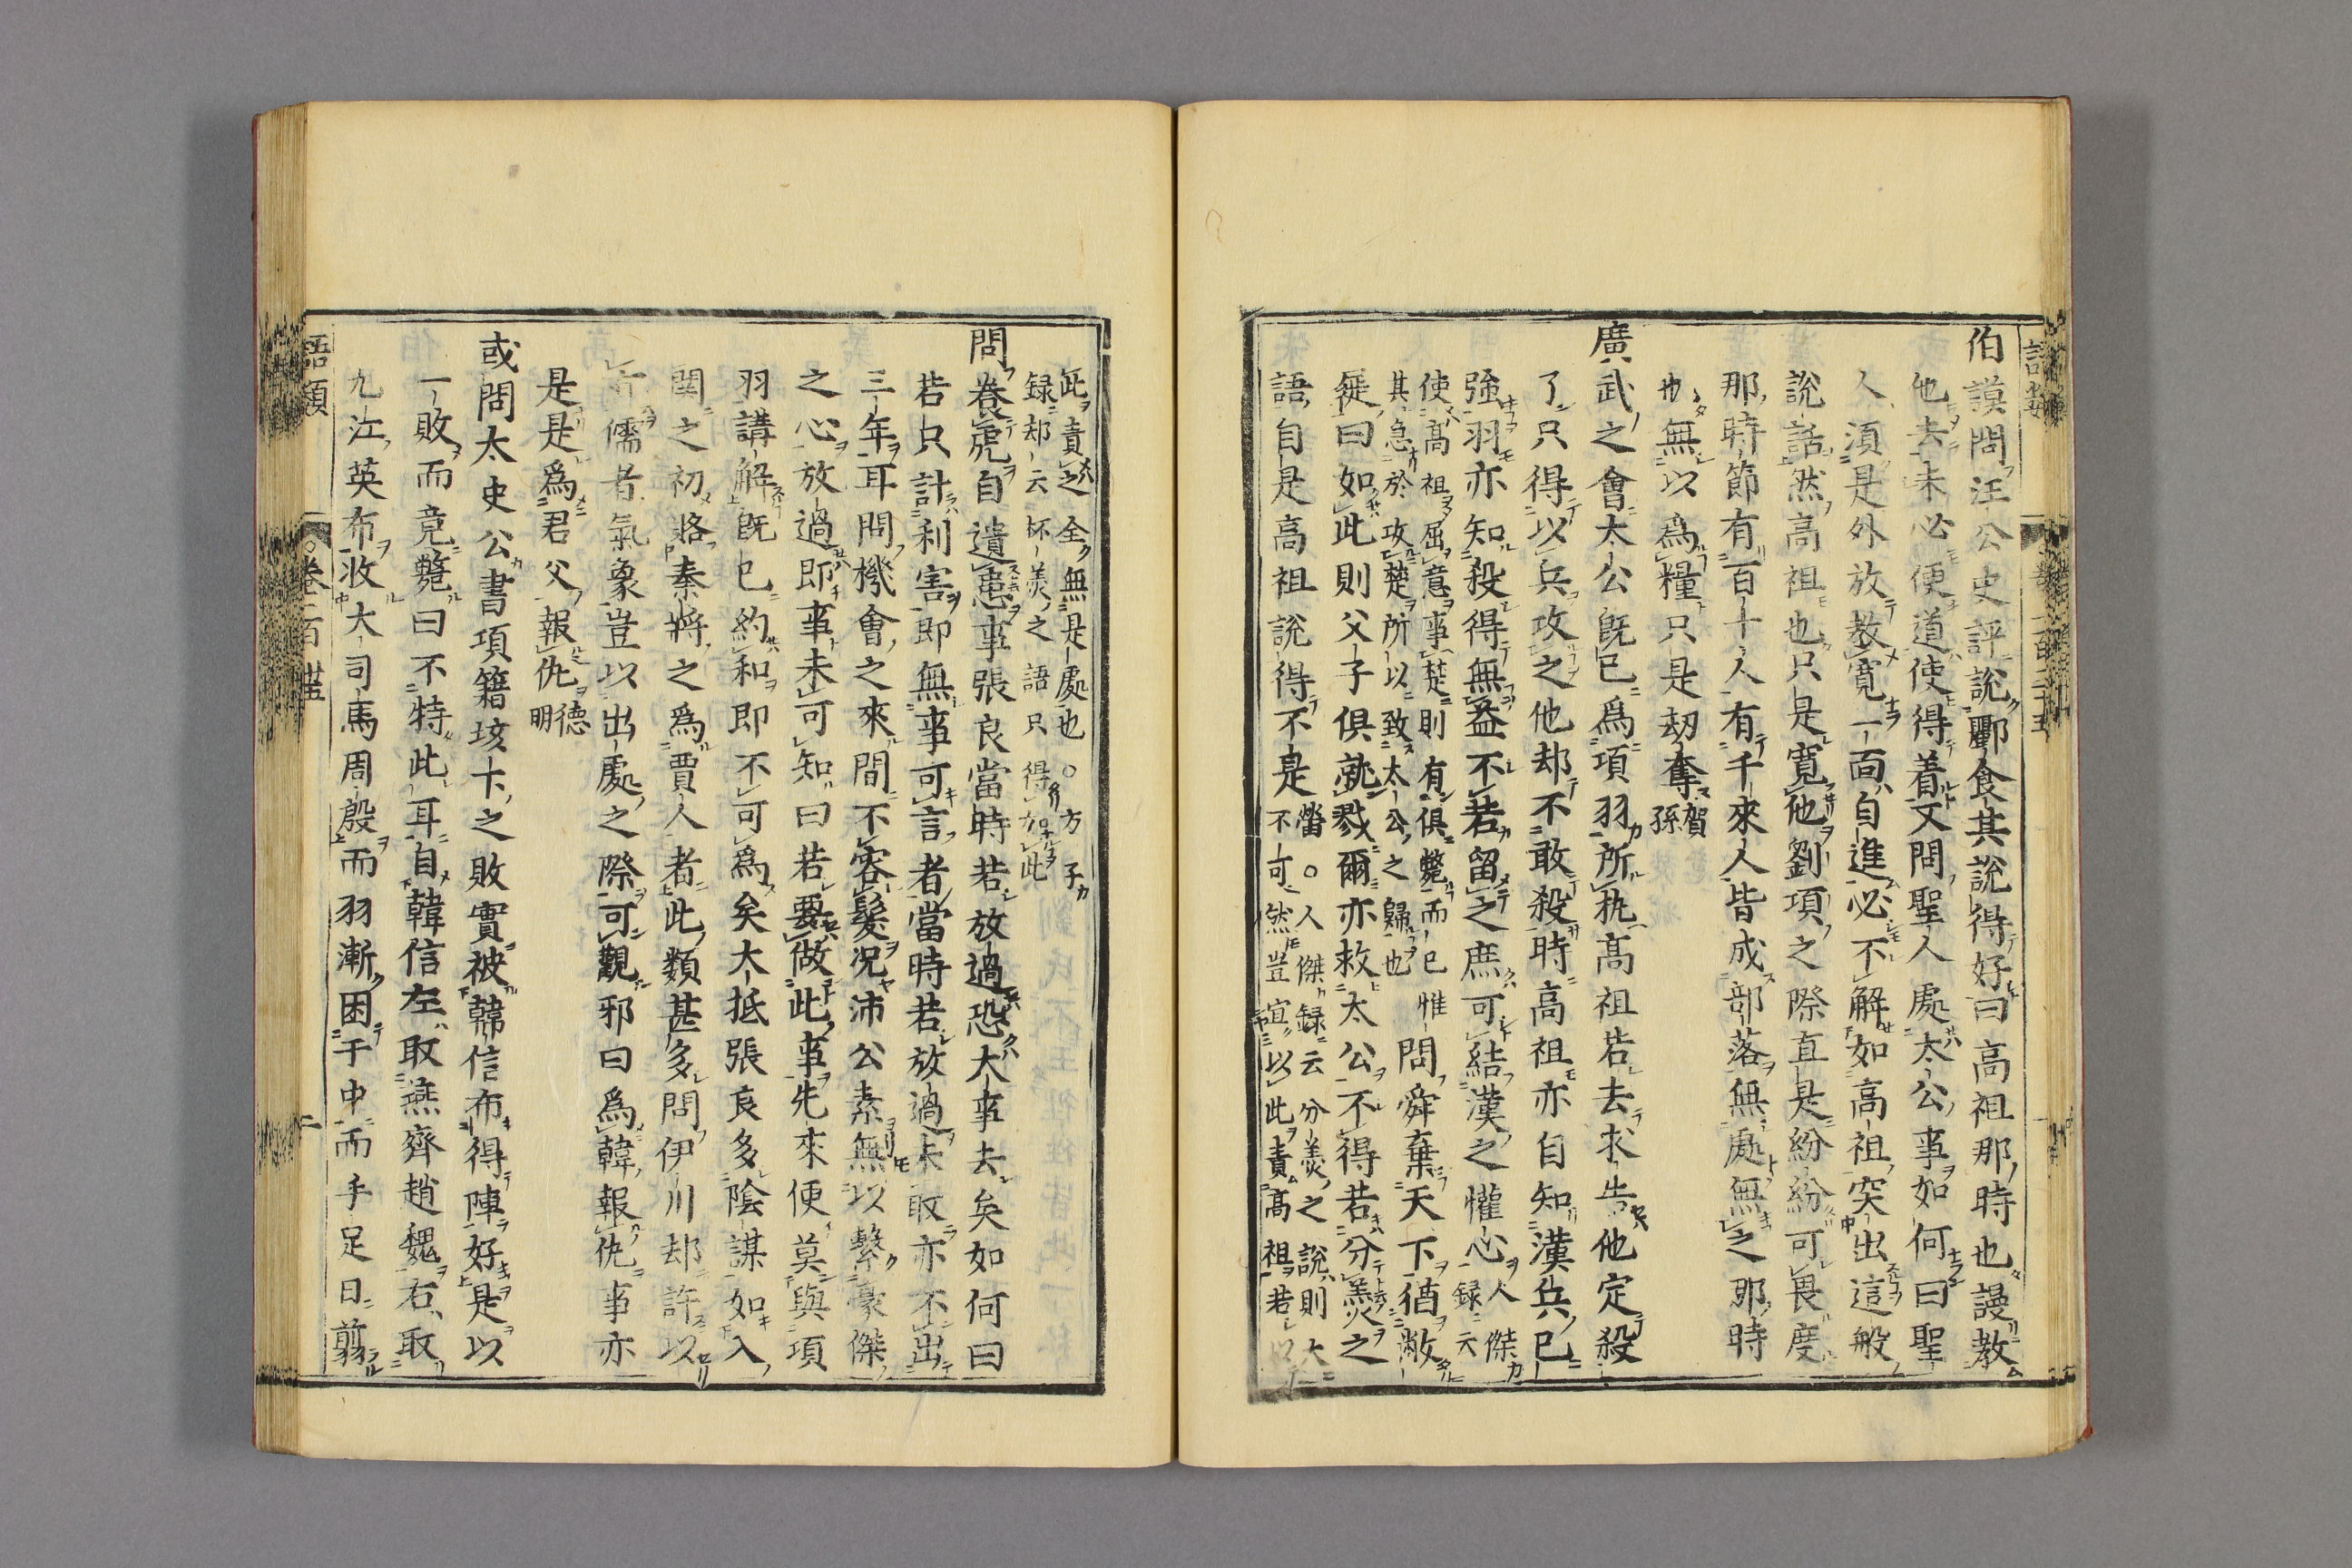 伯謨問汪公史評說酈食其說得好曰高祖那時也謾教
他去未必便道使得着又問聖人處太公事如何曰聖
人須是外放教寛一面自進必不解如高祖突出這般
說話然高祖也只是寬他劉項之際直是紛紛可畏度
那時節有百十人有千來人皆成部落無處無之那時
也無以爲糧只是刼奪賀孫
廣武之會太公旣已爲項羽所執高祖若去求告他定殺
了只得以兵攻之他却不敢殺時高祖亦自知漢兵已
強羽亦知殺得無益不若留之庶可結漢之懽心人傑録云
使高祖屈意事楚則有俱斃而已惟
其急於攻楚所以致太公之歸也
問舜棄天下猶敝
屣曰如此則父子俱就戮爾亦救太公不得若分羹之
語自是高祖說得不是㽦○人傑録云分羹之說則大
不可然豈宜以此責高祖若以
此責之全無是處也○方子
録却云杯羹之語只得如此
問養虎自遺患事張良當時若放過恐大事去矣如何曰
若只計利害即無事可言者當時若放過未取亦不出
三年耳問機會之來間不容髮況沛公素無以繫豪傑
之心放過即事未可知曰若要做此事先來便莫與項
羽講解旣已約和即不可爲矣大抵張良多陰謀如入
関之初賂秦將之爲賈人者此類甚多問伊川却許以
有儒者氣象豈以出處之際可觀邪曰爲韓報仇事亦
是是爲君父報仇德明
或問太史公書項籍垓下之敗實被韓信布得陣好是以
一敗而竟斃曰不特此耳自韓信左取燕齊趙魏右取
九江英布收大司馬周殷而羽漸困于中而手足日翦
語類
卷一百
二